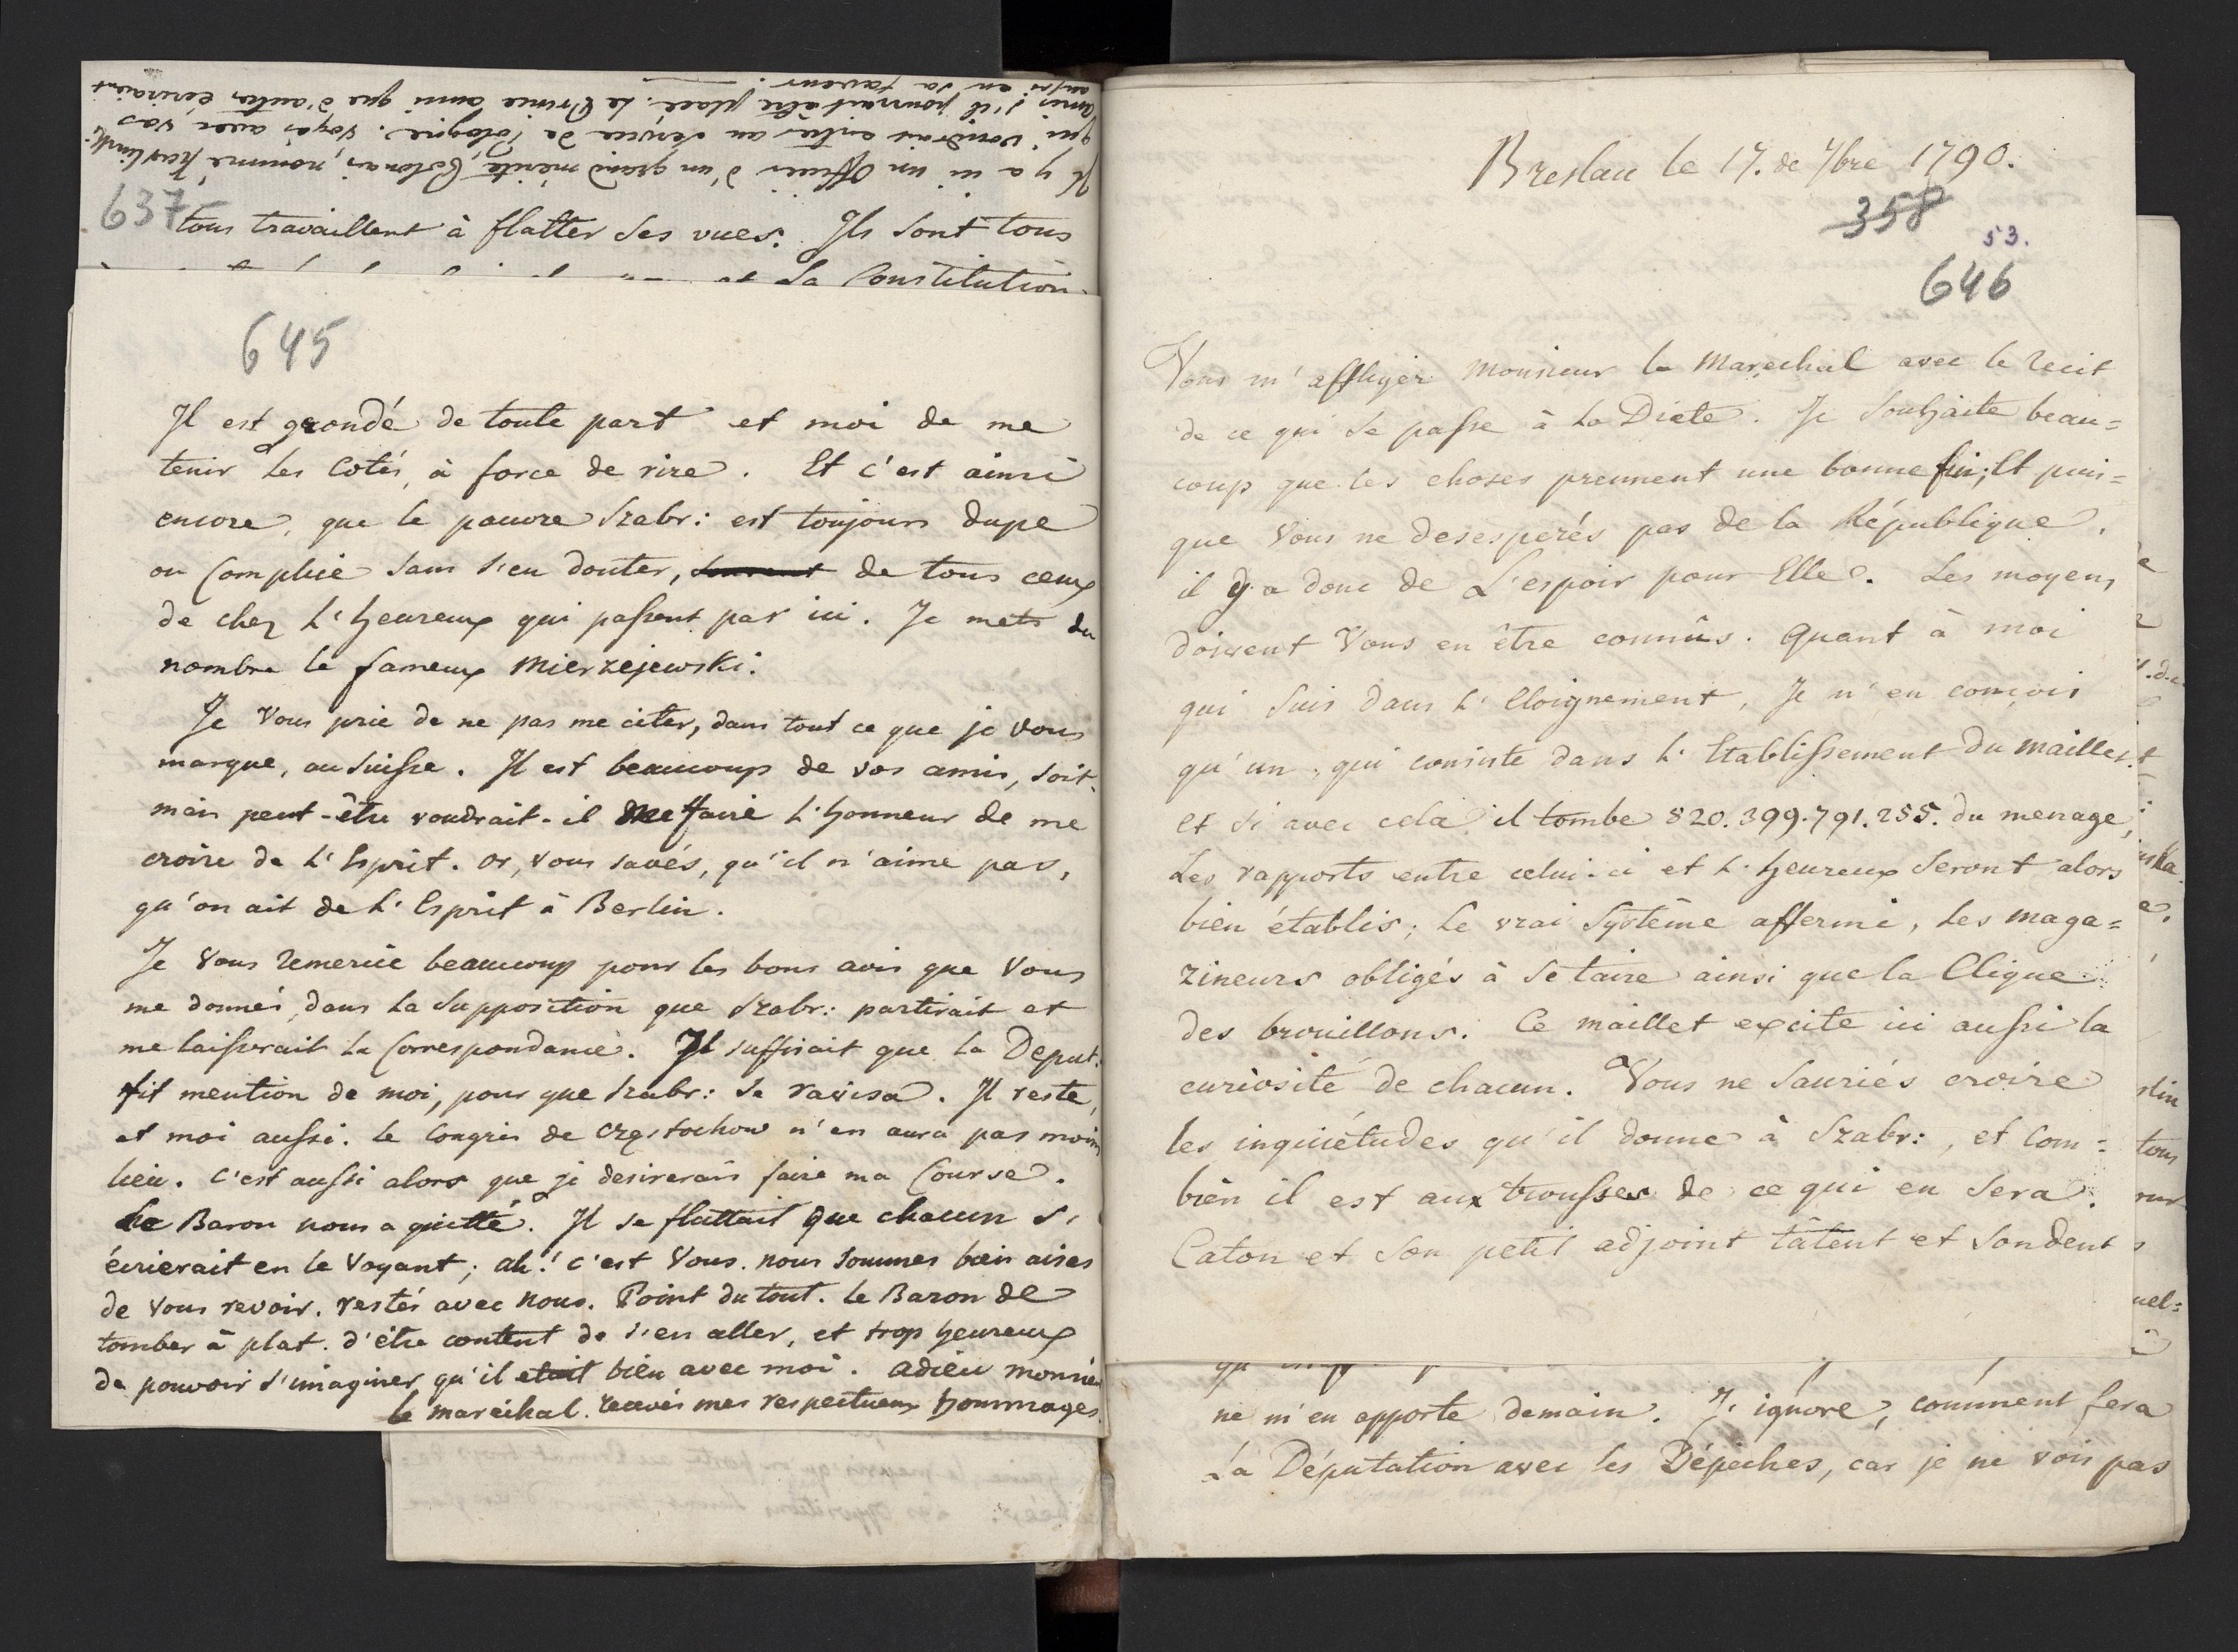 Il y a ici un Officier d'un grand mérite, Polonais, nommé
qui voudrait entrer au service de Pologne. Voyés avec vos
amis s'il pourrait être placé. Le Prince ainsi que d'autres écriraient
aussi en sa faveur.
637
tous travaillent à flatter ses vues. Ils sont tous
et la Constitution
645
Il est grondé de toute part et moi de me
tenir les Cotés, à force de rire. Et c'est ainsi
encore, que le pauvre Szabr: est toujours dupe
ou Complice sans s'en douter, souvent de tous ceux
de chez L'heureux qui passent par ici. Je mets du
nombre le fameux Mierzejewski.
Je Vous prie de ne pas me citer, dans tout ce que je vous
marque, au Suisse. Il est beaucoup de vos amis, soit.
mais peut-être voudrait-il me faire L'honneur de me
croire de L'Esprit. Or, vous savés, qu'il n'aime pas,
qu'on ait de L'Esprit à Berlin.
Je Vous remercie beaucoup pour les bons avis que Vous
me donnés, dans la Supposition que Szabr: partirait et
me laisserait la Correspondance. Il suffisait que la Deput:
fit mention de moi, pour que Szabr: se ravisa. Il reste,
et moi aussi. le Congrès de Częstochow n'en aura pas moins
lieu. C'est aussi alors que je desirerais faire ma Course.
Le Baron nous a quitté. Il se flattait que chacun s'
écrierait en le Voyant; ah! c'est Vous. nous sommes bien aises
de Vous revoir. restés avec nous. Point du tout. le Baron de
tomber à plat. d'être content de s'en aller, et trop heureux
de pouvoir s'imaginer qu'il etait bien avec moi. adieu monsieur
le maréchal. recevés mes respectueux hommages.
Breslau le 17. de 7bre 1790.
358
53.
646
Vous m'affligés Monsieur le Marechal avec le recit
de ce qui se passe à la Diete. Je souhaite beau=
coup que les choses prennent une bonne fin; Et puis=
que Vous ne desesperés pas de la République,
il y a donc de L'espoir pour Elle. Les moyens
doivent Vous en être connûs. Quant à moi
qui suis dans L'Eloignement, Je n'en conçois
qu'un, qui consiste dans L'Etablissement du maillet.
et si avec cela il tombe 820.399.791.255. du menage,
Les rapports entre celui-ci et L'heureux seront alors
bien établis; le vrai Système affermi, les maga=
zineurs obligés à se taire ainsi que la Clique
des brouillons. Ce maillet excite ici aussi la
curiosité de chacun. Vous ne sauriés croire
les inquiétudes qu'il donne à Szabr:, et Com=
bien il est aux trousses de ce qui en sera.
Caton et son petit adjoint tâtent et sondent
ne m'en apporte demain. J'ignore, comment fera
La Députation avec les Dépeches, car je ne vois pas